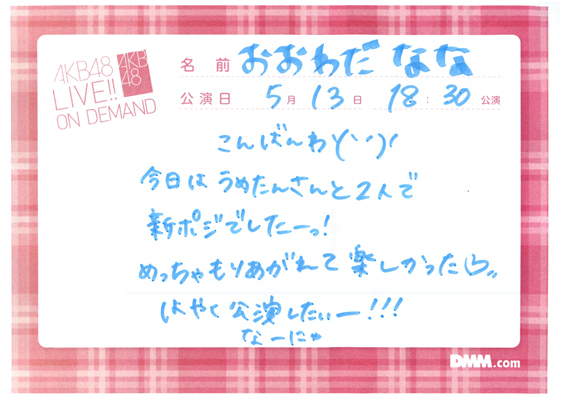 AKB48
LIVE!!
ON DEMAND
AKB
48
名前 おおわだ なな
公演日 5月13日 18:30公演
こんばんわ(˙˙)!
今日は うめたんさんと2人で
新ポジでしたーっ!
めっちゃもりあがれて 楽しかったら〟
はやく 公演したいー!!!
なーにゃ
DMM.com